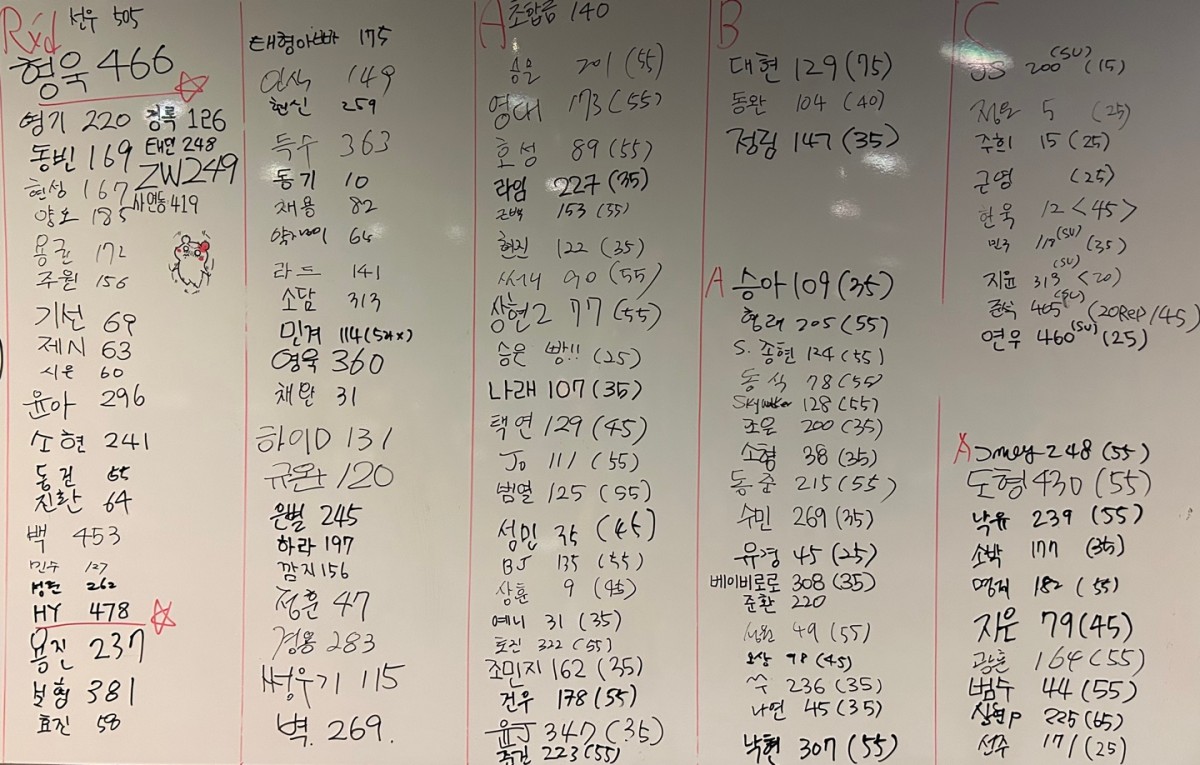 Rxd 선우 505
형욱 466
영기 220 경록 126
동빈 169 태민 248
현성 167 ZW 249
양호 185 사연동 419
용균 172
주원 156
기선 69
제시 63
시은 60
윤아 296
소현 241
동권 55
진환 64
백 453
민수 127
262
HY 478
용진 237
보형 381
효진 58
태형아빠 175
인식 149
현신 259
득수 363
동기 10
재용 82
64
라드 141
소담 313
민겸 114
영욱 360
채환 31
하이D 131
규완 120
은별 245
하라 197
깜지 156
정훈 47
경용 283
썽우기 115
벽. 269.
A 조합금 140
승윤 201 (55)
영대 173 (55)
호성 89 (55)
라임 227 (35)
153 (55)
현진 122 (35)
써니 90 (55)
상현2 77 (55)
승은 빵!! (25)
나래 107 (35)
택연 129 (45)
Jo 111 (55)
범열 125 (55)
성민 35 (45)
BJ 135 (55)
상훈 9 (45)
예니 31 (35)
토진 322 (55)
조민지 162 (35)
건우 178 (55)
윤J 347 (35)
223 (55)
B
대현 129 (75)
동완 104 (40)
정림 147 (35)
A 승아 109 (35)
현래 205 (55)
S. 종현 124 (55)
동식 78 (55)
Skywalker 128 (55)
조은 200 (35)
소형 38 (35)
동준 215 (55)
수민 269 (35)
유경 45 (25)
베이비로로 308 (35)
준환 220
49 (55)
오상 98 (45)
쑤 236 (35)
나연 45 (35)
낙현 307 (55)
C
JS 200 (SU) (15)
정은 5 (25)
주희 15 (25)
근영 (25)
현욱 12 <45>
민우 117 (SU) (35)
지윤 313 (SU) <20)
준식 465 (SU) (20Rep/45)
연우 460 (SU) (25)
A Jmey 248 (55)
도형 430 (55)
낙유 239 (55)
소박 177 (35)
명제 182 (55)
지은 79 (45)
광훈 164 (55)
범수 44 (55)
상현P 225
선주 171 (25)